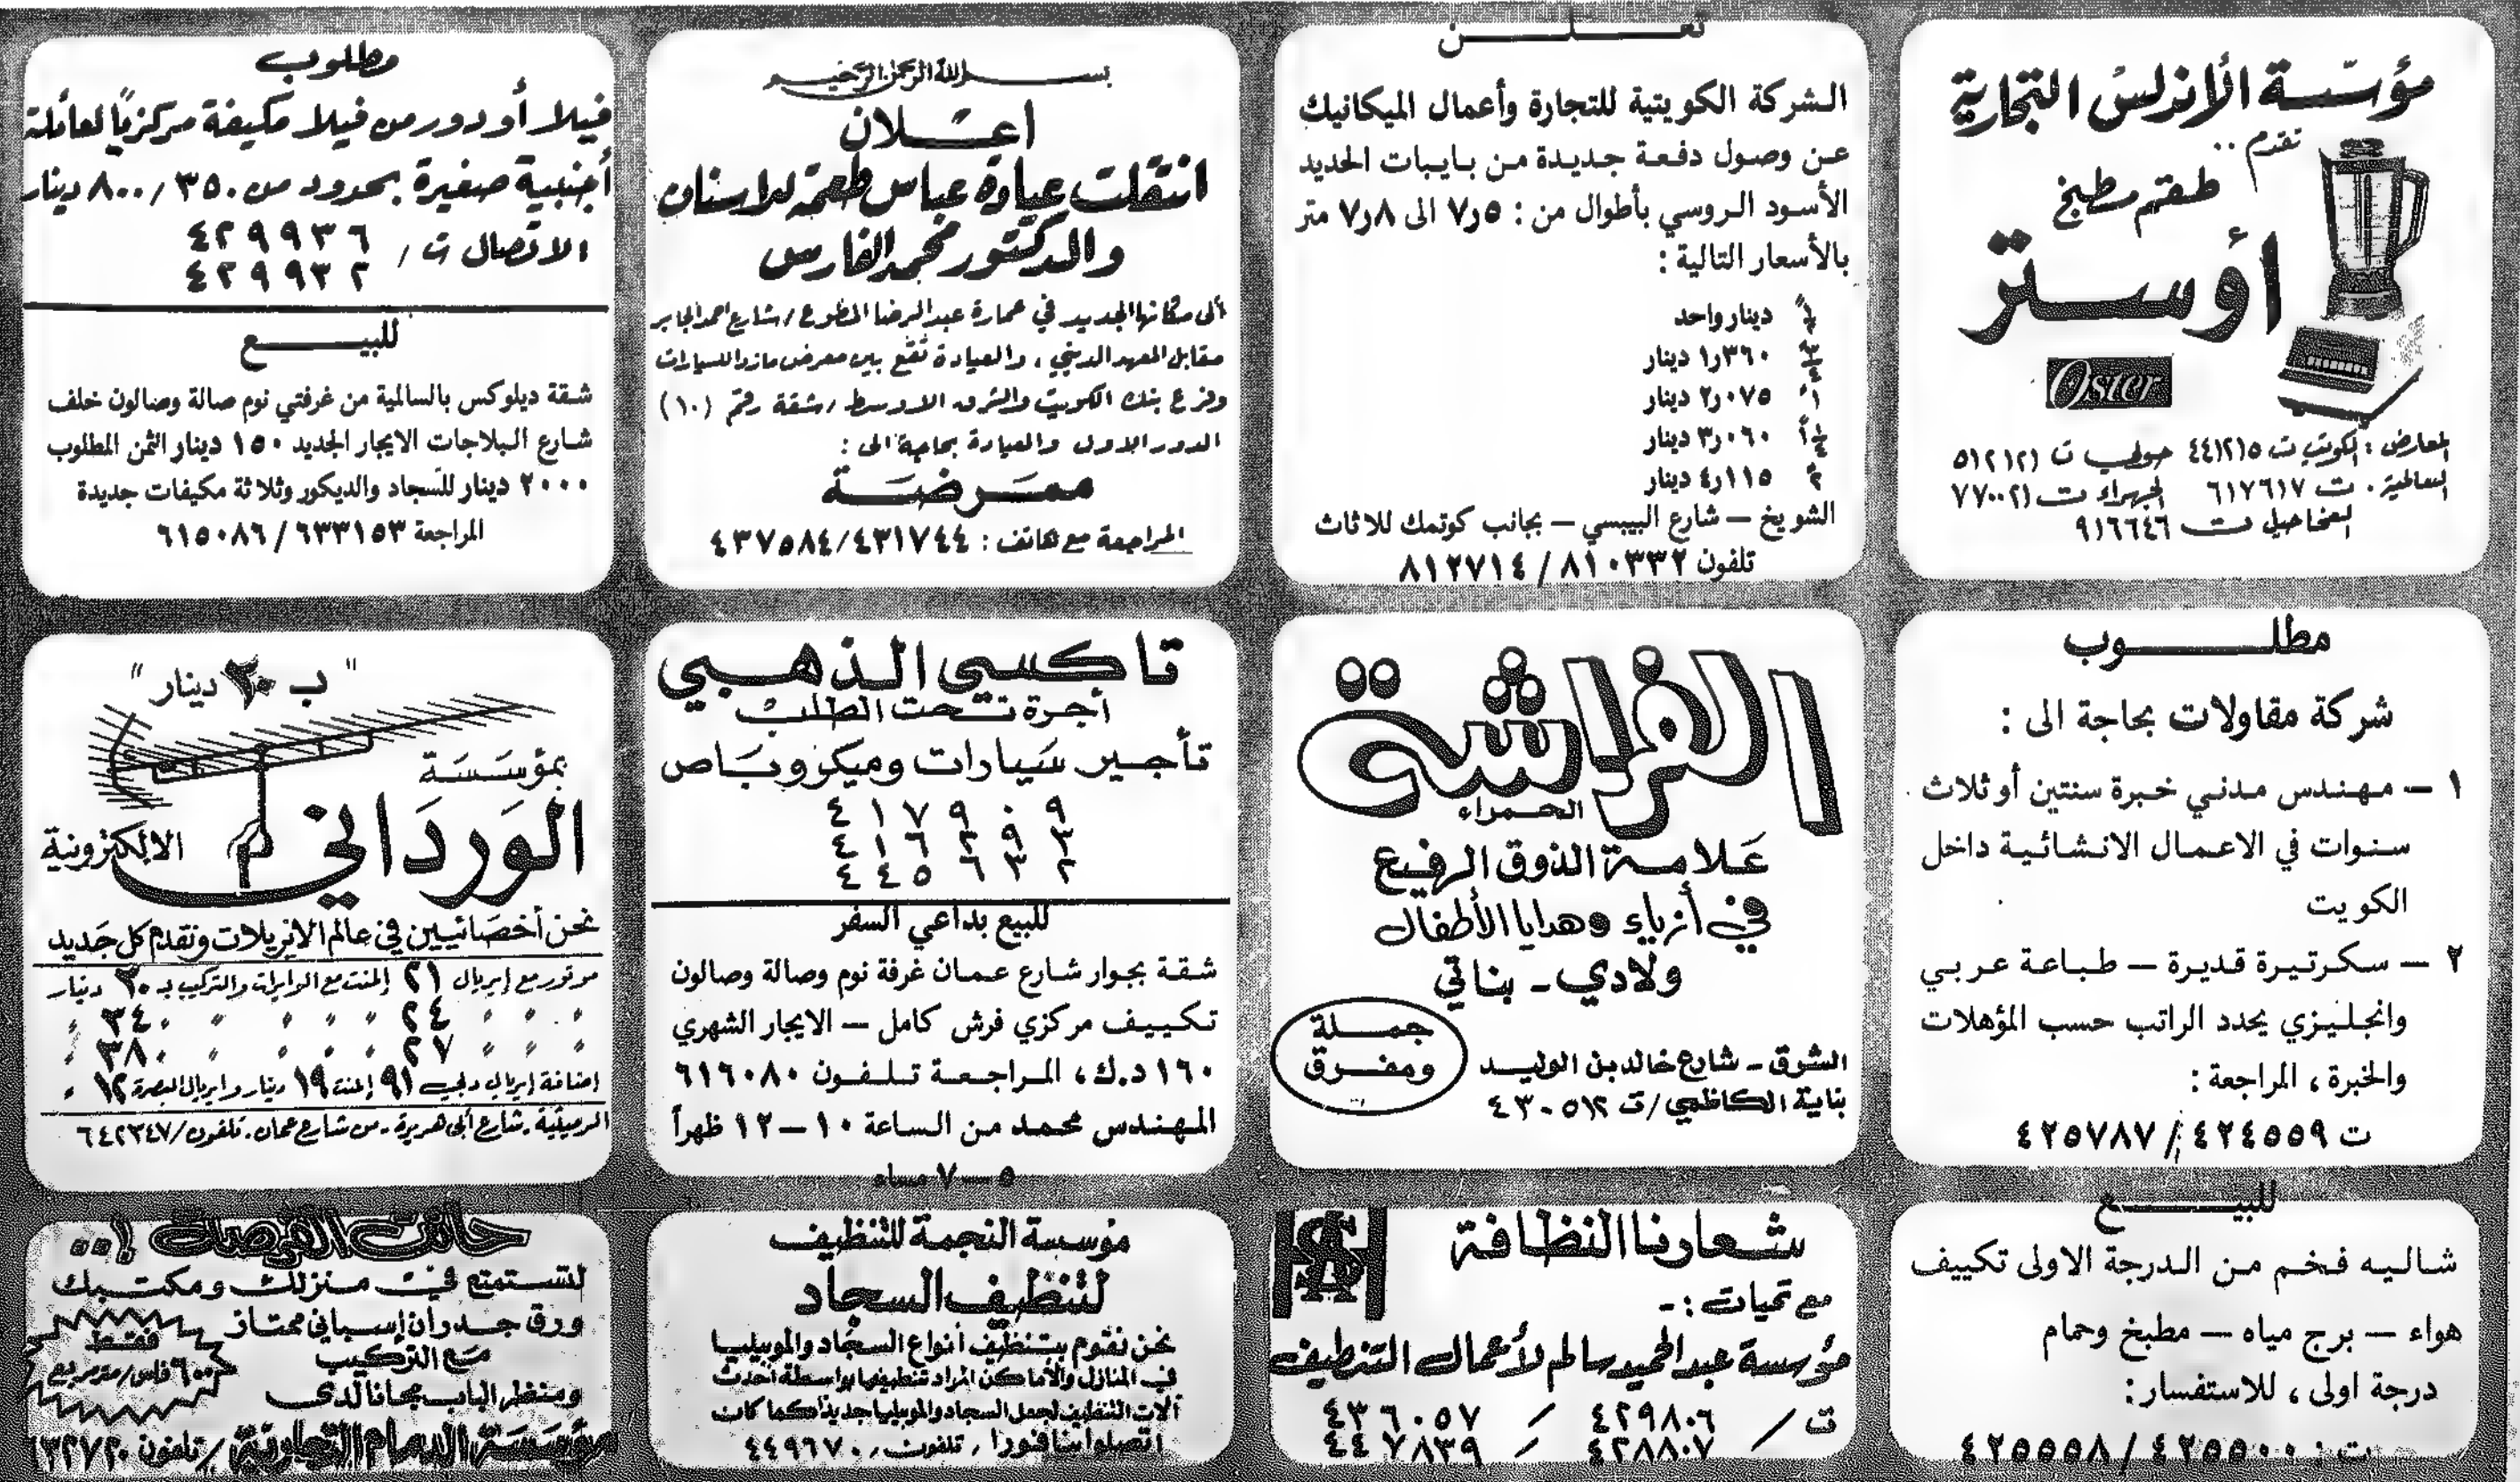 مؤسسة الأندلس التجارية
تقدم ..
طقم مطبخ
أوستر
Oster
المعارض : الكويت ت ٤٤١٢١٥ حولي ت ٥١٢١٢١
السالمية . ت ٦١٧٦١٧ الجهراء ت ٧٧٠٠٢١
الفحاحيل ت ٩١٦٦٤٦
تعلن
الشركة الكويتية للتجارة وأعمال الميكانيك
عن وصول دفعة جديدة من بايبات الحديد
الأسود الروسي بأطوال من : ٥ر٧ الى ٨ر٧ متر
بالأسعار التالية :
دينار واحد
٣٦٠ر١ دينار
١ً ٠٧٥ر٢ دينار
٠٦٠ر٣ دينار
٢ً ١١٥ر٤ دينار
الشويخ — شارع البيبسي — بجانب كوتمك للاثاث
تلفون ٨١٠٣٣٢ / ٨١٢٧١٤
بسم الله الرحمن الرحيم
اعلان
انتقلت عيادة عباس طعمة للاسنان
والدكتور محمد الفارس
ألى مكانها الجديد في عمارة عبد الرضا المطوع / شارع احمد الجابر
مقابل المعهد الديني ، والعيادة تقع بين معرض مازدا للسيارات
وفرع بنك الكويت والشرق الاوسط / شقة رقم (١٠)
الدور الاول والعيادة بحاجة الى :
ممرضة
المراجعة مع هاتف : ٤٣١٧٤٤/٤٣٧٥٨٤
مطلوب
فيلا أو دور من فيلا مكيفة مركزياً لعائلة
أجنبية صغيرة بحدود من ٣٥٠ / ٨٠٠ دينار
الاتصال ت / ٤٢٩٩٣٦
٤٢٩٩٣٢
للبيع
شقة ديلوكس بالسالمية من غرفتي نوم صالة وصالون خلف
شارع البلاجات الايجار الجديد ١٥٠ دينار الثمن المطلوب
٢٠٠٠ دينار للسجاد والديكور وثلاثة مكيفات جديدة
المراجعة ٦٣٣١٥٣ / ٦١٥٠٨٦
مطلوب
شركة مقاولات بحاجة الى :
١ — مهندس مدني خبرة سنتين أو ثلاث
سنوات في الاعمال الانشائية داخل
الكويت
٢ — سكرتيرة قديرة — طباعة عربي
وانجليزي يحدد الراتب حسب المؤهلات
والخبرة ، المراجعة :
ت ٤٢٤٥٥٩ / ٤٢٥٧٨٧
الفراشة
الحمراء
علامة الذوق الرفيع
في أزياء وهدايا الأطفال
ولادي - بناتي
جملة
ومفرق
الشرق - شارع خالد بن الوليد
بناية الكاظمي / ت ٤٣٠٥١٢
تاكسي الذهبي
أجرة تحت الطلب
تأجير سيارات وميكروباص
٤١٧٩٠٩
٤١٦٢٩٣
٤٤٥٦٣٢
للبيع بداعي السفر
شقة بجوار شارع عمان غرفة نوم وصالة وصالون
تكييف مركزي فرش كامل — الايجار الشهري
١٦٠ د.ك ، المراجعة تلفون ٦١٦٠٨٠
المهندس محمد من الساعة ١٠ — ١٢ ظهراً
٥ — ٧ مساء
" ب ٢٠ دينار "
بمؤسسة
الورداني
الالكترونية
نحن أخصائيين في عالم الانريلات ونقدم كل جديد
موتور مع إيريال ٢١ إلمنت مع الوايرات والتركيب بـ ٢٠ دينار
" " " ٢٤ " " " " " ٣٤٠ "
" " " ٢٧ " " " " " ٣٨٠ "
إضافة إيريال دبي ٩١ إلمنت ١٩ دينار وايريال البصرة ١٢ "
الرميثية . شارع أبي هريرة . من شارع عمان . تلفون / ٦٤٢٣٤٧
للبيع
شاليه فخم من الدرجة الاولى تكييف
هواء — برج مياه — مطبخ وحمام
درجة اولى ، للاستفسار :
ت : ٤٢٥٥٠٠ / ٤٢٥٥٥٨
شعارنا النظافة
مع تحيات : -
مؤسسة عبد الحميد سالم لأعمال التنظيف
ت / ٤٢٩٨٠٦ / ٤٣٦٠٥٧
٤٢٨٨٠٧ / ٤٤٧٨٣٩
مؤسسة النجمة للتنظيف
لتنظيف السجاد
نحن نقوم بتنظيف أنواع السجاد والموبيليا
في المنازل والأماكن المراد تنظيفها بواسطة أحدث
آلات التنظيف لجعل السجاد والموبيليا جديدا كما كانت
اتصلوا بنا فورا ، تلفون ، ٤٤٩٦٧٠
حانت الفرصة !..
لتستمتع في منزلك ومكتبك
ورق جدران إسباني ممتاز
مع التركيب
فقط
٦٠٠ فلس / متر مربع
ومنظر الباب مجانا لدى
مؤسسة الدمام التجارية / تلفون ٦٣٢٧٢٠